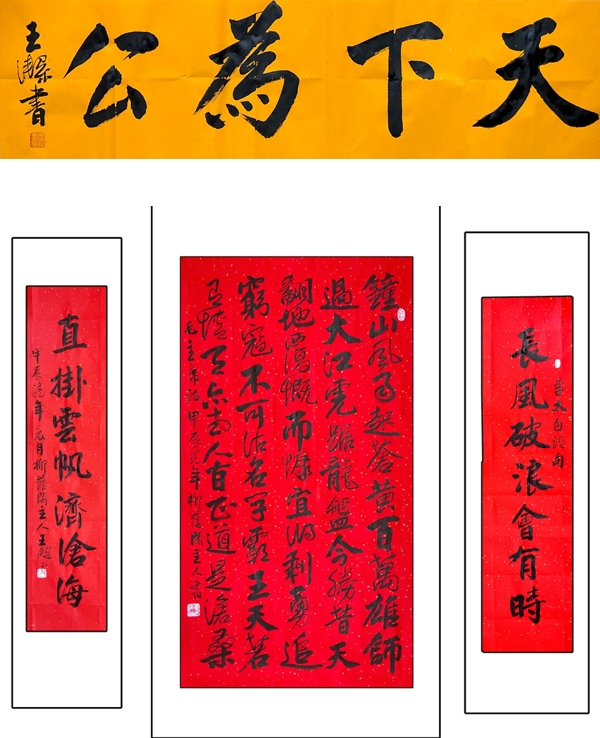 天下為公
王
書
長風破浪會有時
李太白詩句
鐘山風雨起蒼黃百萬雄師
過大江虎踞龍盤今勝昔天
翻地覆慨而慷宜將剩勇追
窮寇不可沽名學霸王天若
有情天亦老人間正道是滄桑
毛主席詩甲辰龍年柳蔭主人書
直掛雲帆濟滄海
甲辰龍年月柳蔭主人王